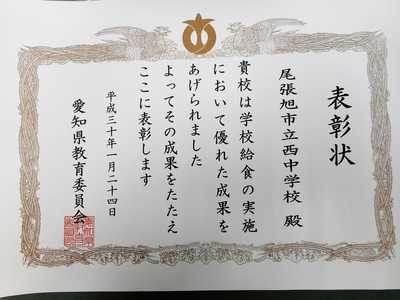 表彰状
尾張旭市立西中学校 殿
貴校は学校給食の実施
において優れた成果を
あげられました
よってその成果をたたえ
ここに表彰します
平成三十年一月二十四日
愛知県教育委員会